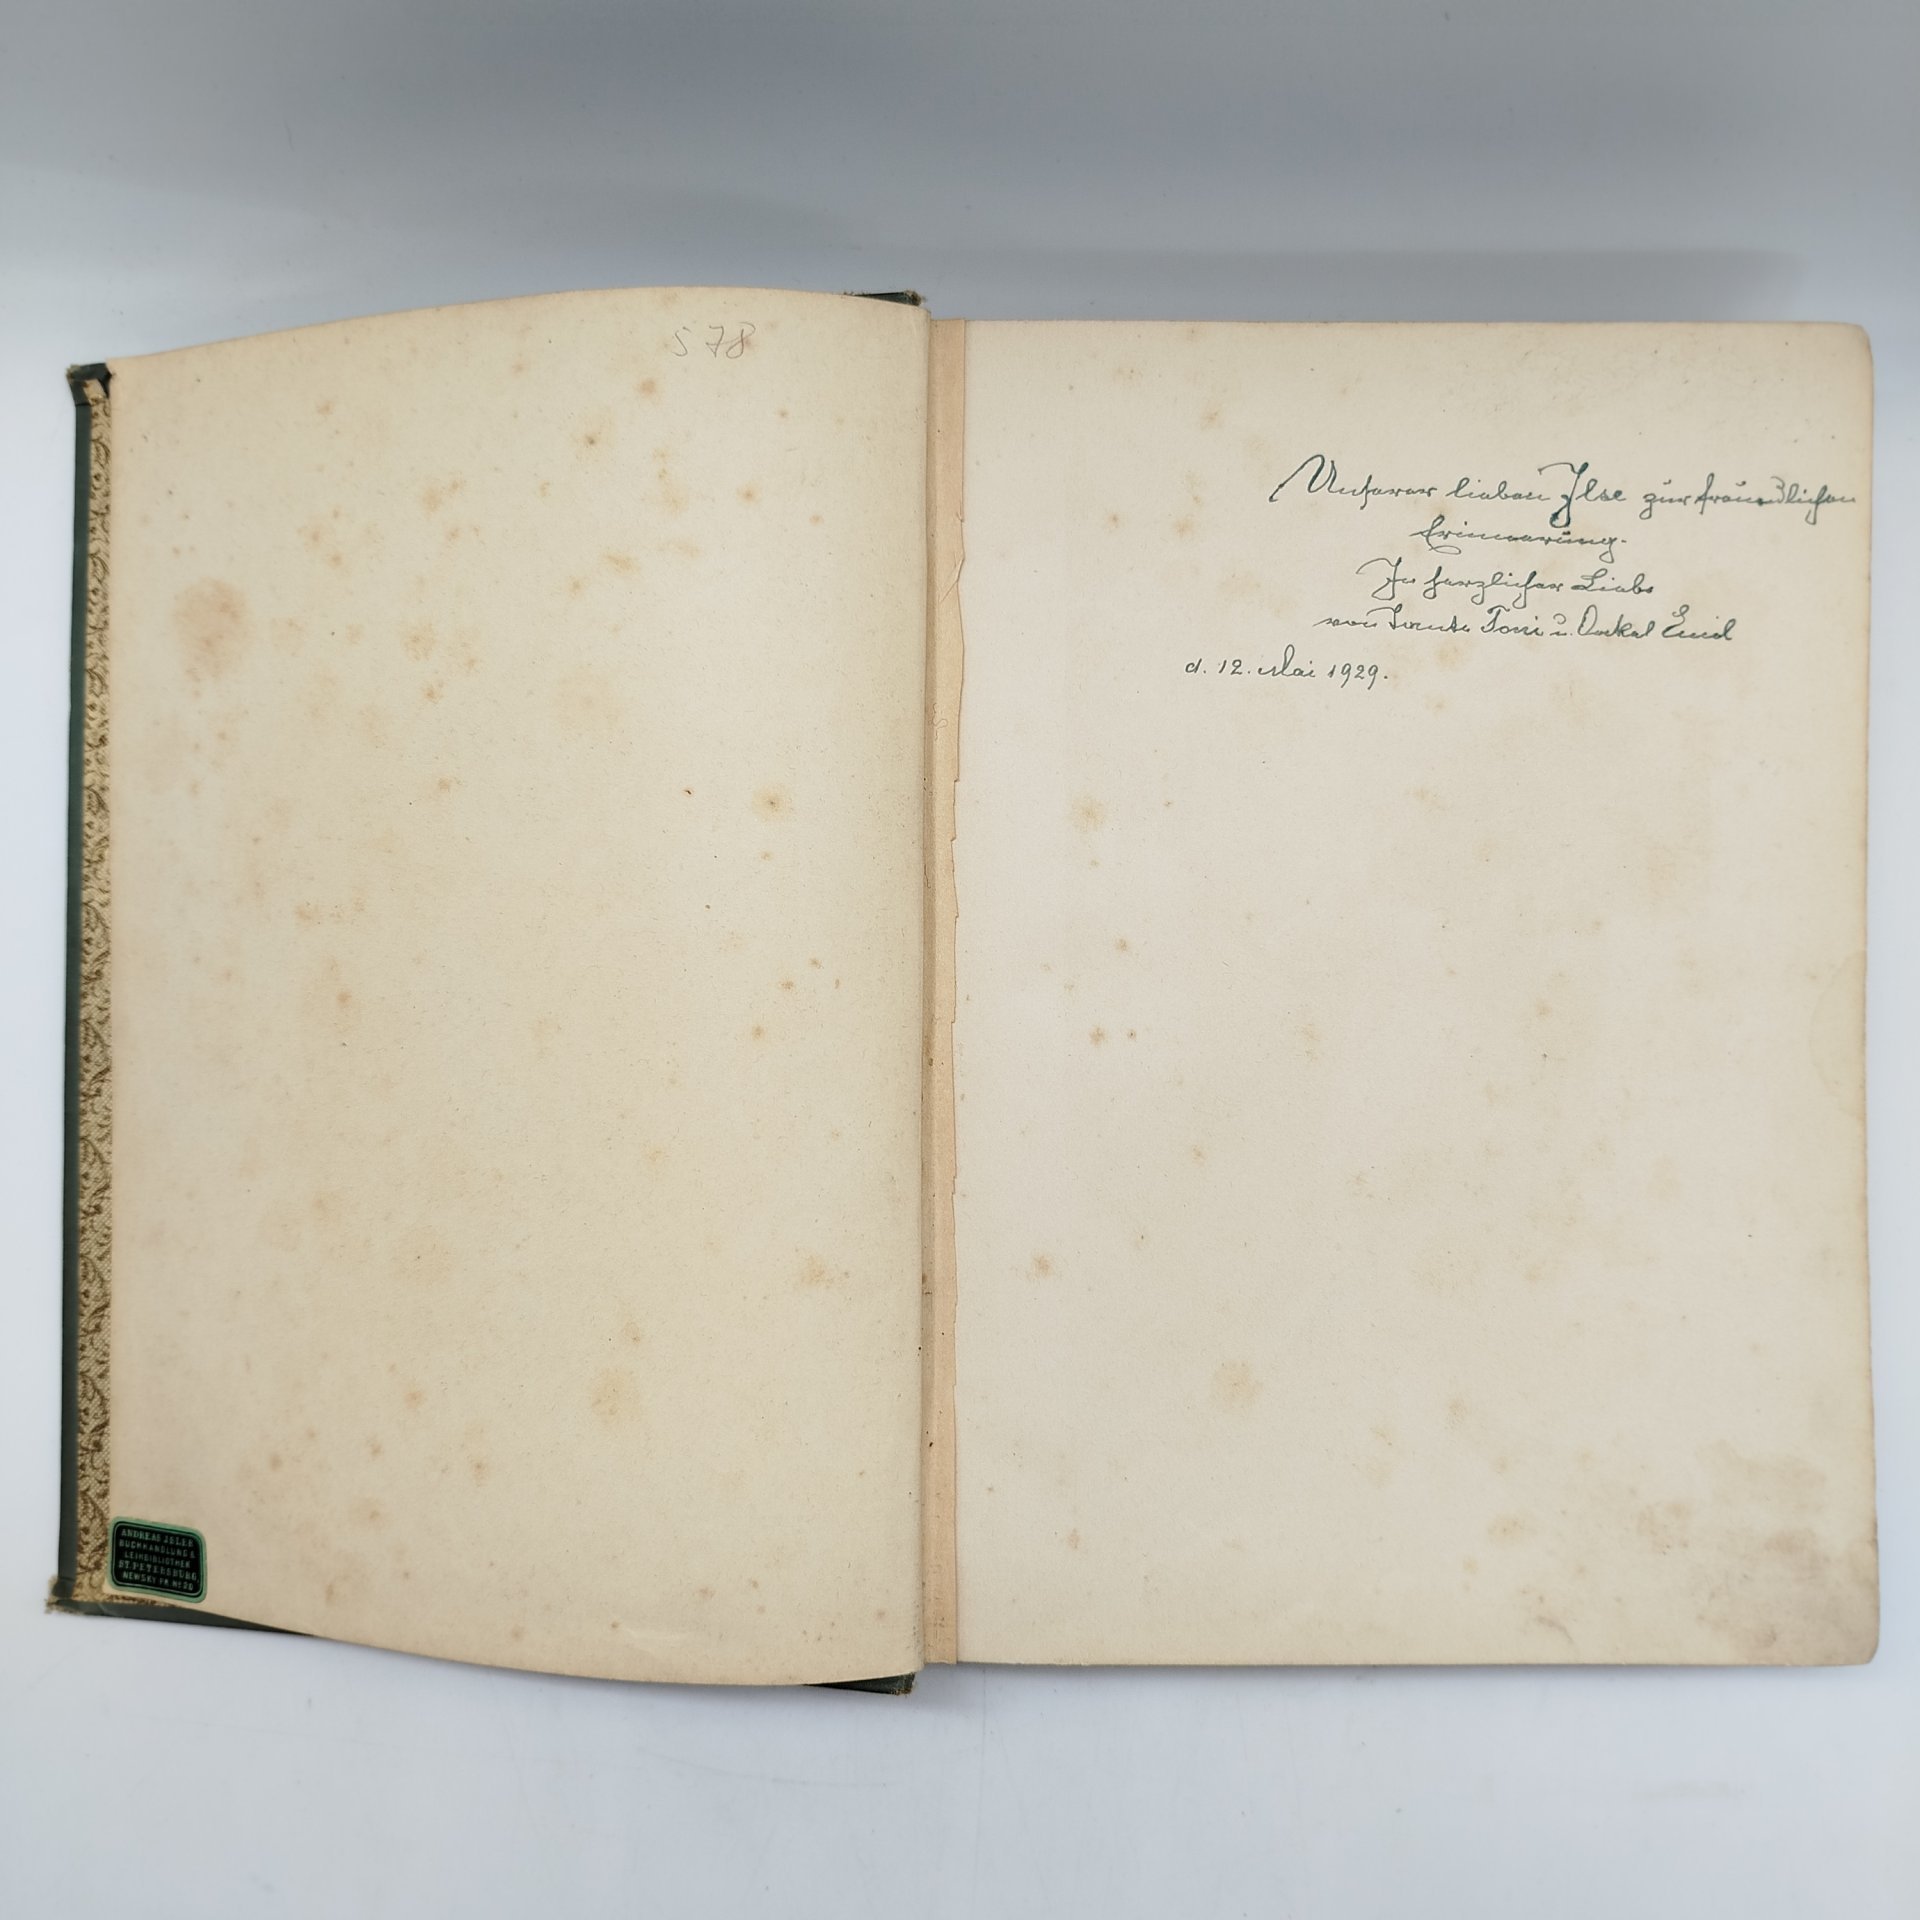 S 78
Unserer lieben Ilse zur freundlichen
Erinnerung.
In herzlicher Liebe
von Tante Toni u. Onkel Emil
d. 12. Mai 1929.
ANDREAS ISLER
BUCHHANDLUNG &
LEIHBIBLIOTHEK
ST. PETERSBURG,
NEWSKY PR. No 20